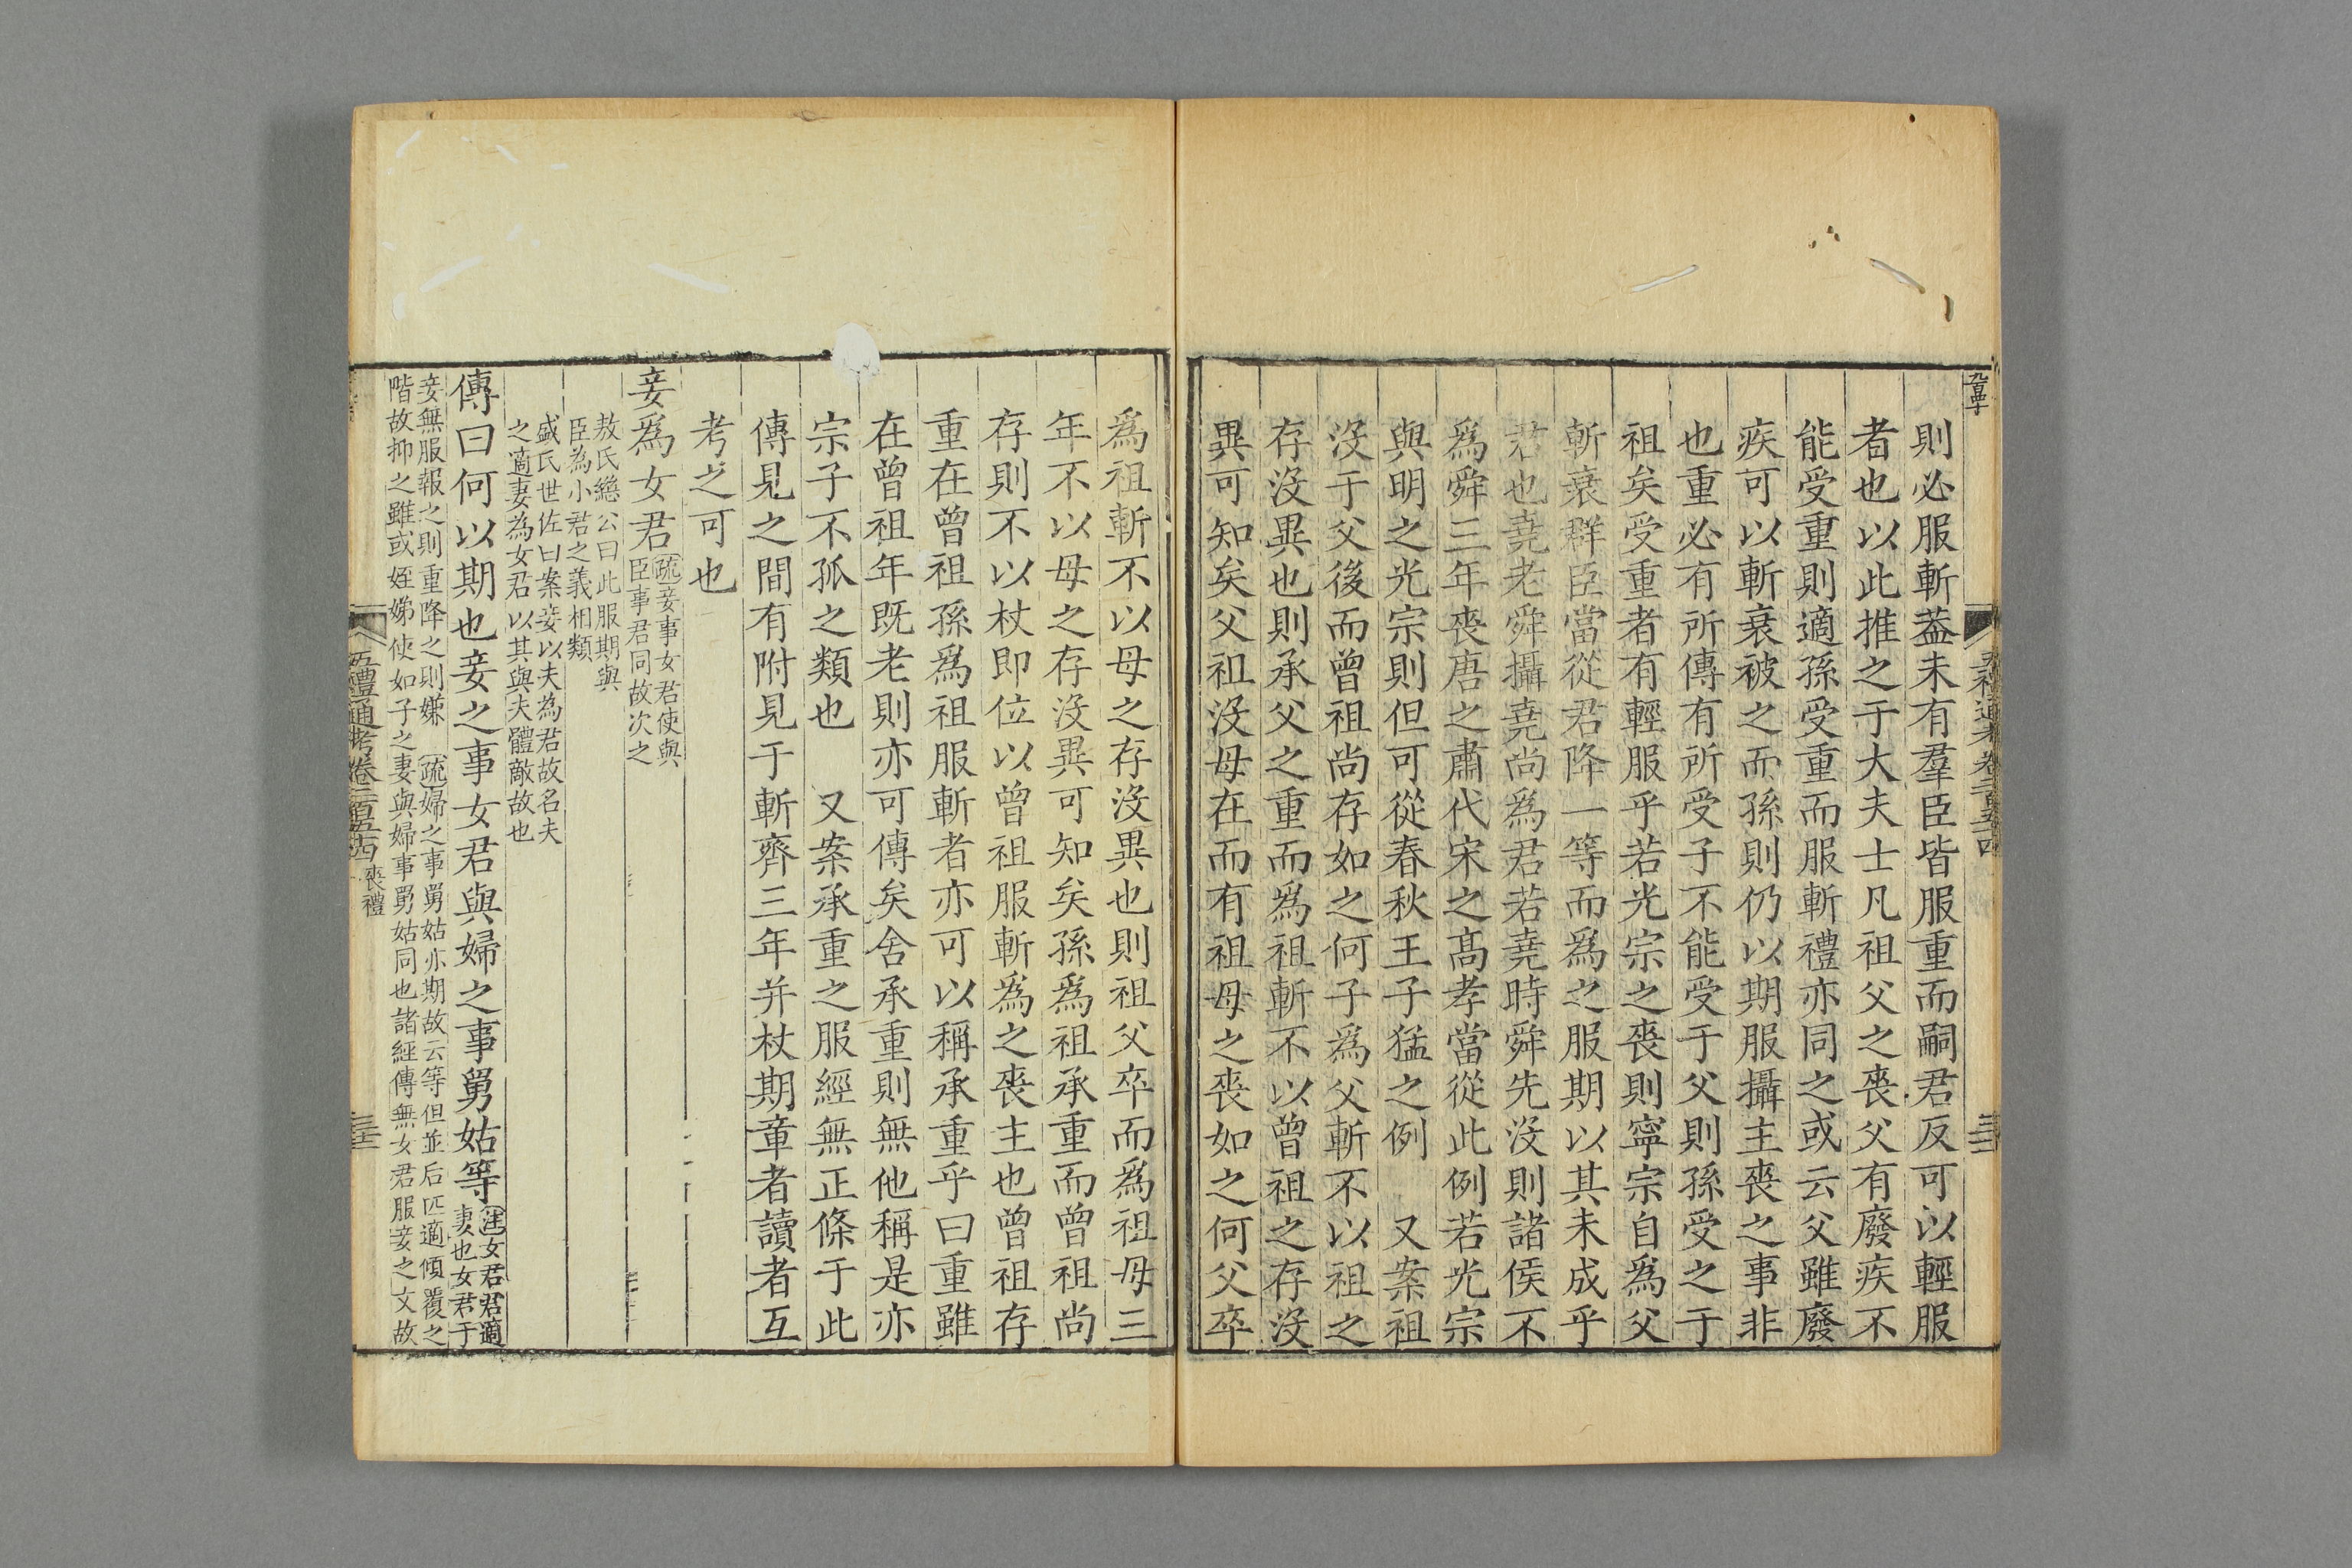 則必服斬葢未有羣臣皆服重而嗣君反可以輕服
者也以此推之于大夫士凡祖父之喪父有廢疾不
能受重則適孫受重而服斬禮亦同之或云父雖廢
疾可以斬衰被之而孫則仍以期服攝主喪之事非
也重必有所傳有所受子不能受于父則孫受之于
祖矣受重者有輕服乎若光宗之喪則寧宗自為父
斬衰群臣當從君降一等而為之服期以其未成乎
君也堯老舜攝堯尚為君若堯時舜先沒則諸侯不
為舜三年喪唐之肅代宋之高孝當從此例若光宗
與明之光宗則但可從春秋王子猛之例　又案祖
沒于父後而曾祖尚存如之何子為父斬不以祖之
存沒異也則承父之重而為祖斬不以曾祖之存沒
異可知矣父祖沒母在而有祖母之喪如之何父卒
為祖斬不以母之存沒異也則祖父卒而為祖母三
年不以母之存沒異可知矣孫為祖承重而曾祖尚
存則不以杖即位以曾祖服斬為之喪主也曾祖存
重在曾祖孫為祖服斬者亦可以稱承重乎曰重雖
在曾祖年既老則亦可傳矣舍承重則無他稱是亦
宗子不孤之類也　又案承重之服經無正條于此
傳見之間有附見于斬齊三年并杖期章者讀者互
考之可也
妾為女君疏妾事女君使與臣事君同故次之
敖氏繼公曰此服期與
臣為小君之義相類
盛氏世佐曰案妾以夫為君故名夫
之適妻為女君以其與夫體敵故也
傳曰何以期也妾之事女君與婦之事舅姑等注女君君適妻也女君于
妾無服報之則重降之則嫌　疏婦之事舅姑亦期故云等但並后匹適傾覆之
階故抑之雖或姪娣使如子之妻與婦事舅姑同也諸經傳無女君服妾之文故
五禮通考卷二百五十四　喪禮